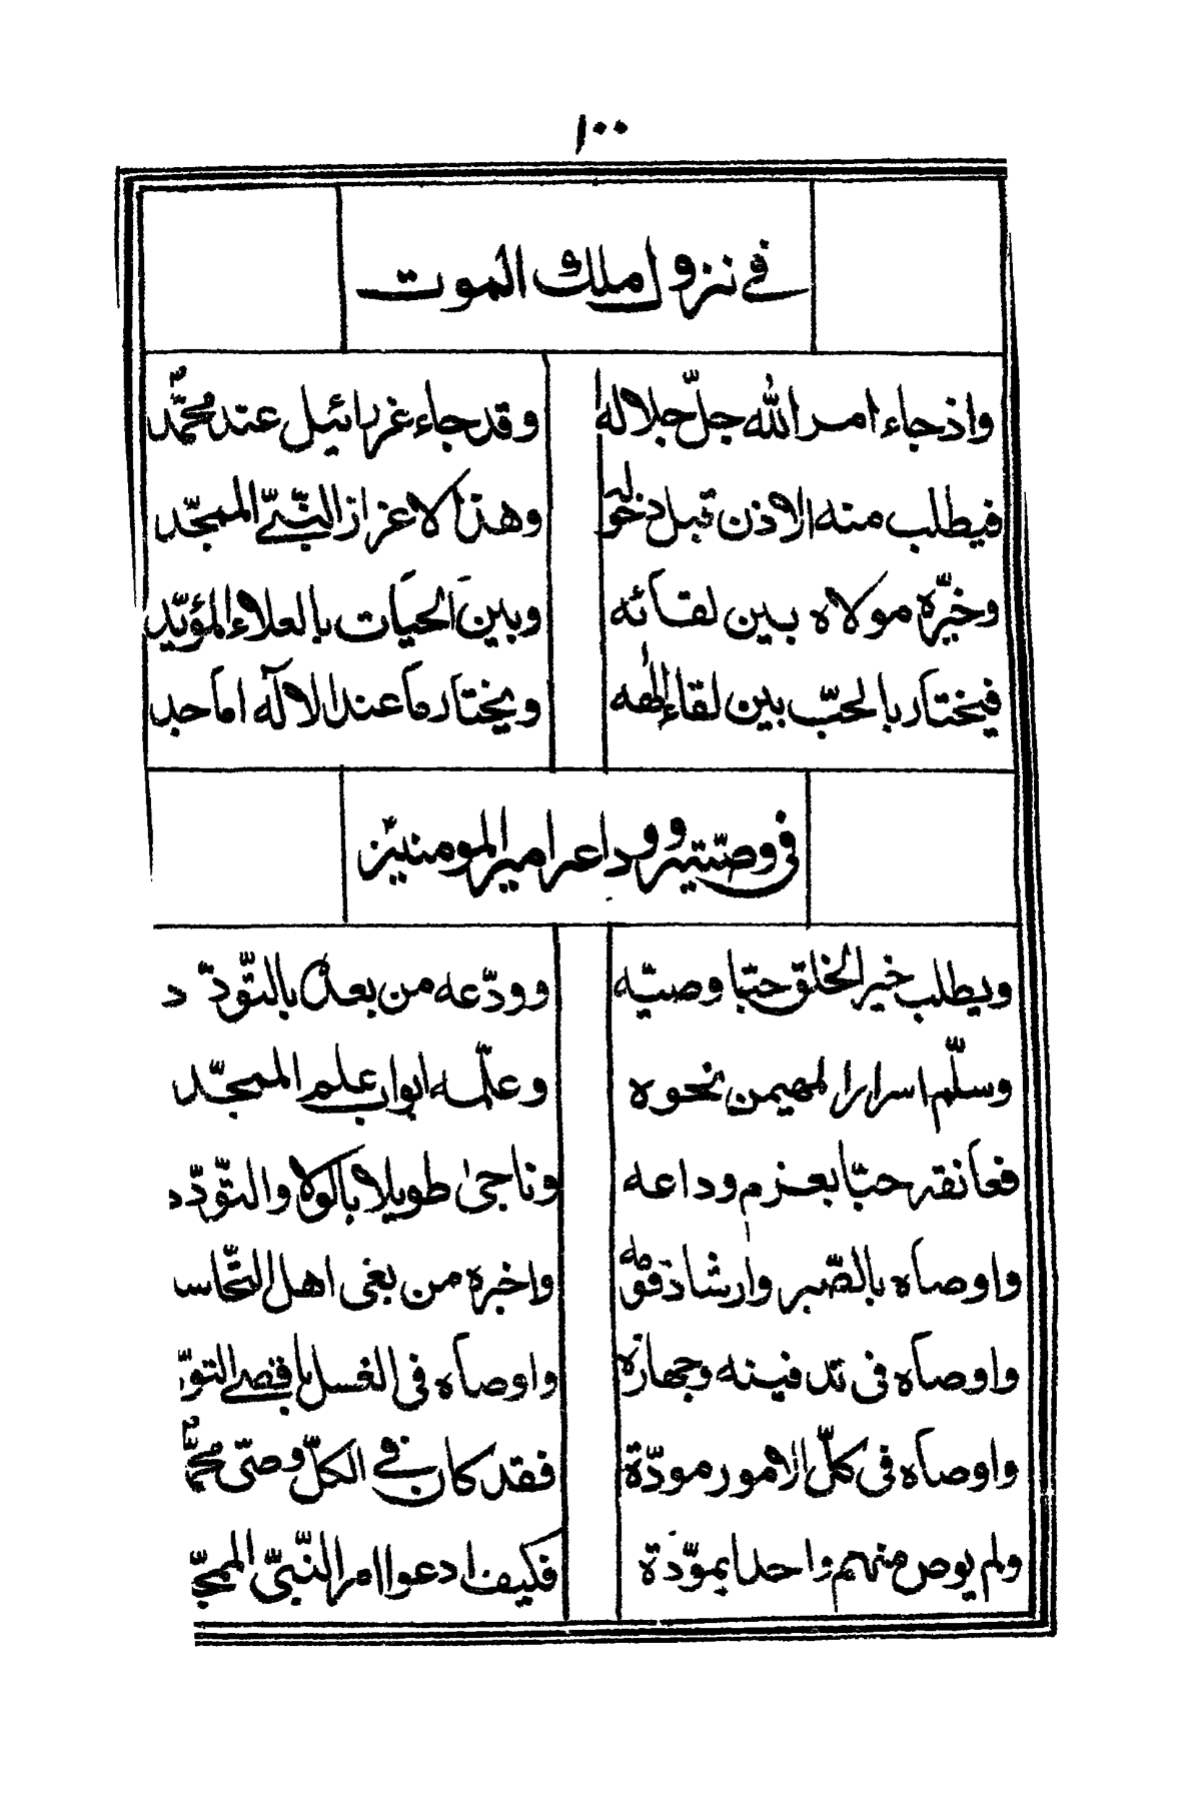 ١٠٠
في نزول ملك الموت
واذ جاء امر الله جلّ جلاله وقد جاء غررائيل عند محمّد
فيطلب منه الاذن قبل دخوله وهذا لاعزاز النّبيّ الممجّد
وخيّره مولاه بين لقائه وبين الحيات بالعلاء المؤيّد
فيختار بالحبّ بين لقاء الٰهه ويختار ما عند الاله اماحد
في وصّيته ووداعه امير المومنين
ويطلب خير الخلق حبّا وصيّه وودّعه من بعد بالتّودّد
وسلّم اسرار المهيمن نحوه وعلّمه ابواب علم الممجّد
فعانقه حبّا بعزم وداعه وناجىٰ طويلا بالولا والتّودّد
واوصاه بالصّبر وارشاد قومه واخبره من بغى اهل التّحاسد
واوصاه في تدفينه وجهازه واوصاه في الغسل باقصى التو
واوصاه في كلّ الامور مودّة فقد كان في الكلّ وصىّ محمّد
ولم يوص منهم واحدا بمودّة فكيف ادعوا امر النّبىّ الممجّ